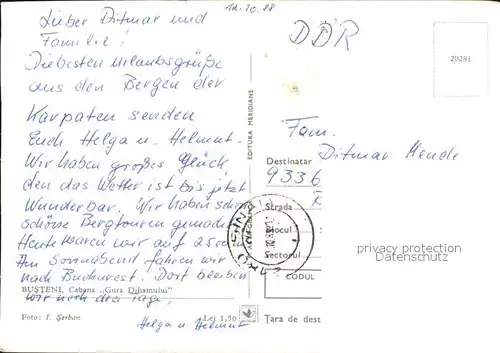 12.10.88
Lieber Ditmar und
Familie!
Die besten Urlaubsgrüße
aus den Bergen der
Karpaten senden
Euch Helga u. Helmut.
Wir haben großes Glück,
den das Wetter ist bis jetzt
Wunderbar. Wir haben schon
schöne Bergtouren gemacht
Heute waren wir auf 2500
Am Sonnabend fahren wir
nach Bucharest. Dort bleiben
wir noch drei Tage.
Helga u Helmut
BUŞTENI, Cabana „Gura Dihamului"
Foto: I. Şerban
Lei 1,50
EDITURA MERIDIANE
DDR
20281
Fam.
Ditmar Hende
Destinatar
9336
Strada
Locul
Sectorul
CODUL
Ţara de dest
privacy protection
oldthing.com